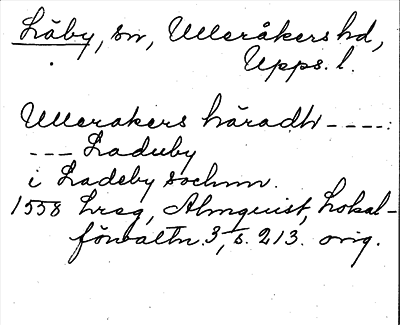 Läby, sn, Ulleråkers hd,
Upps. l.
Ullerakers häradh ----:
--- Laduby
i Ladeby sochnn.
1558 hreg, Almquist, Lokal-
förvaltn. 3, s. 213. orig.